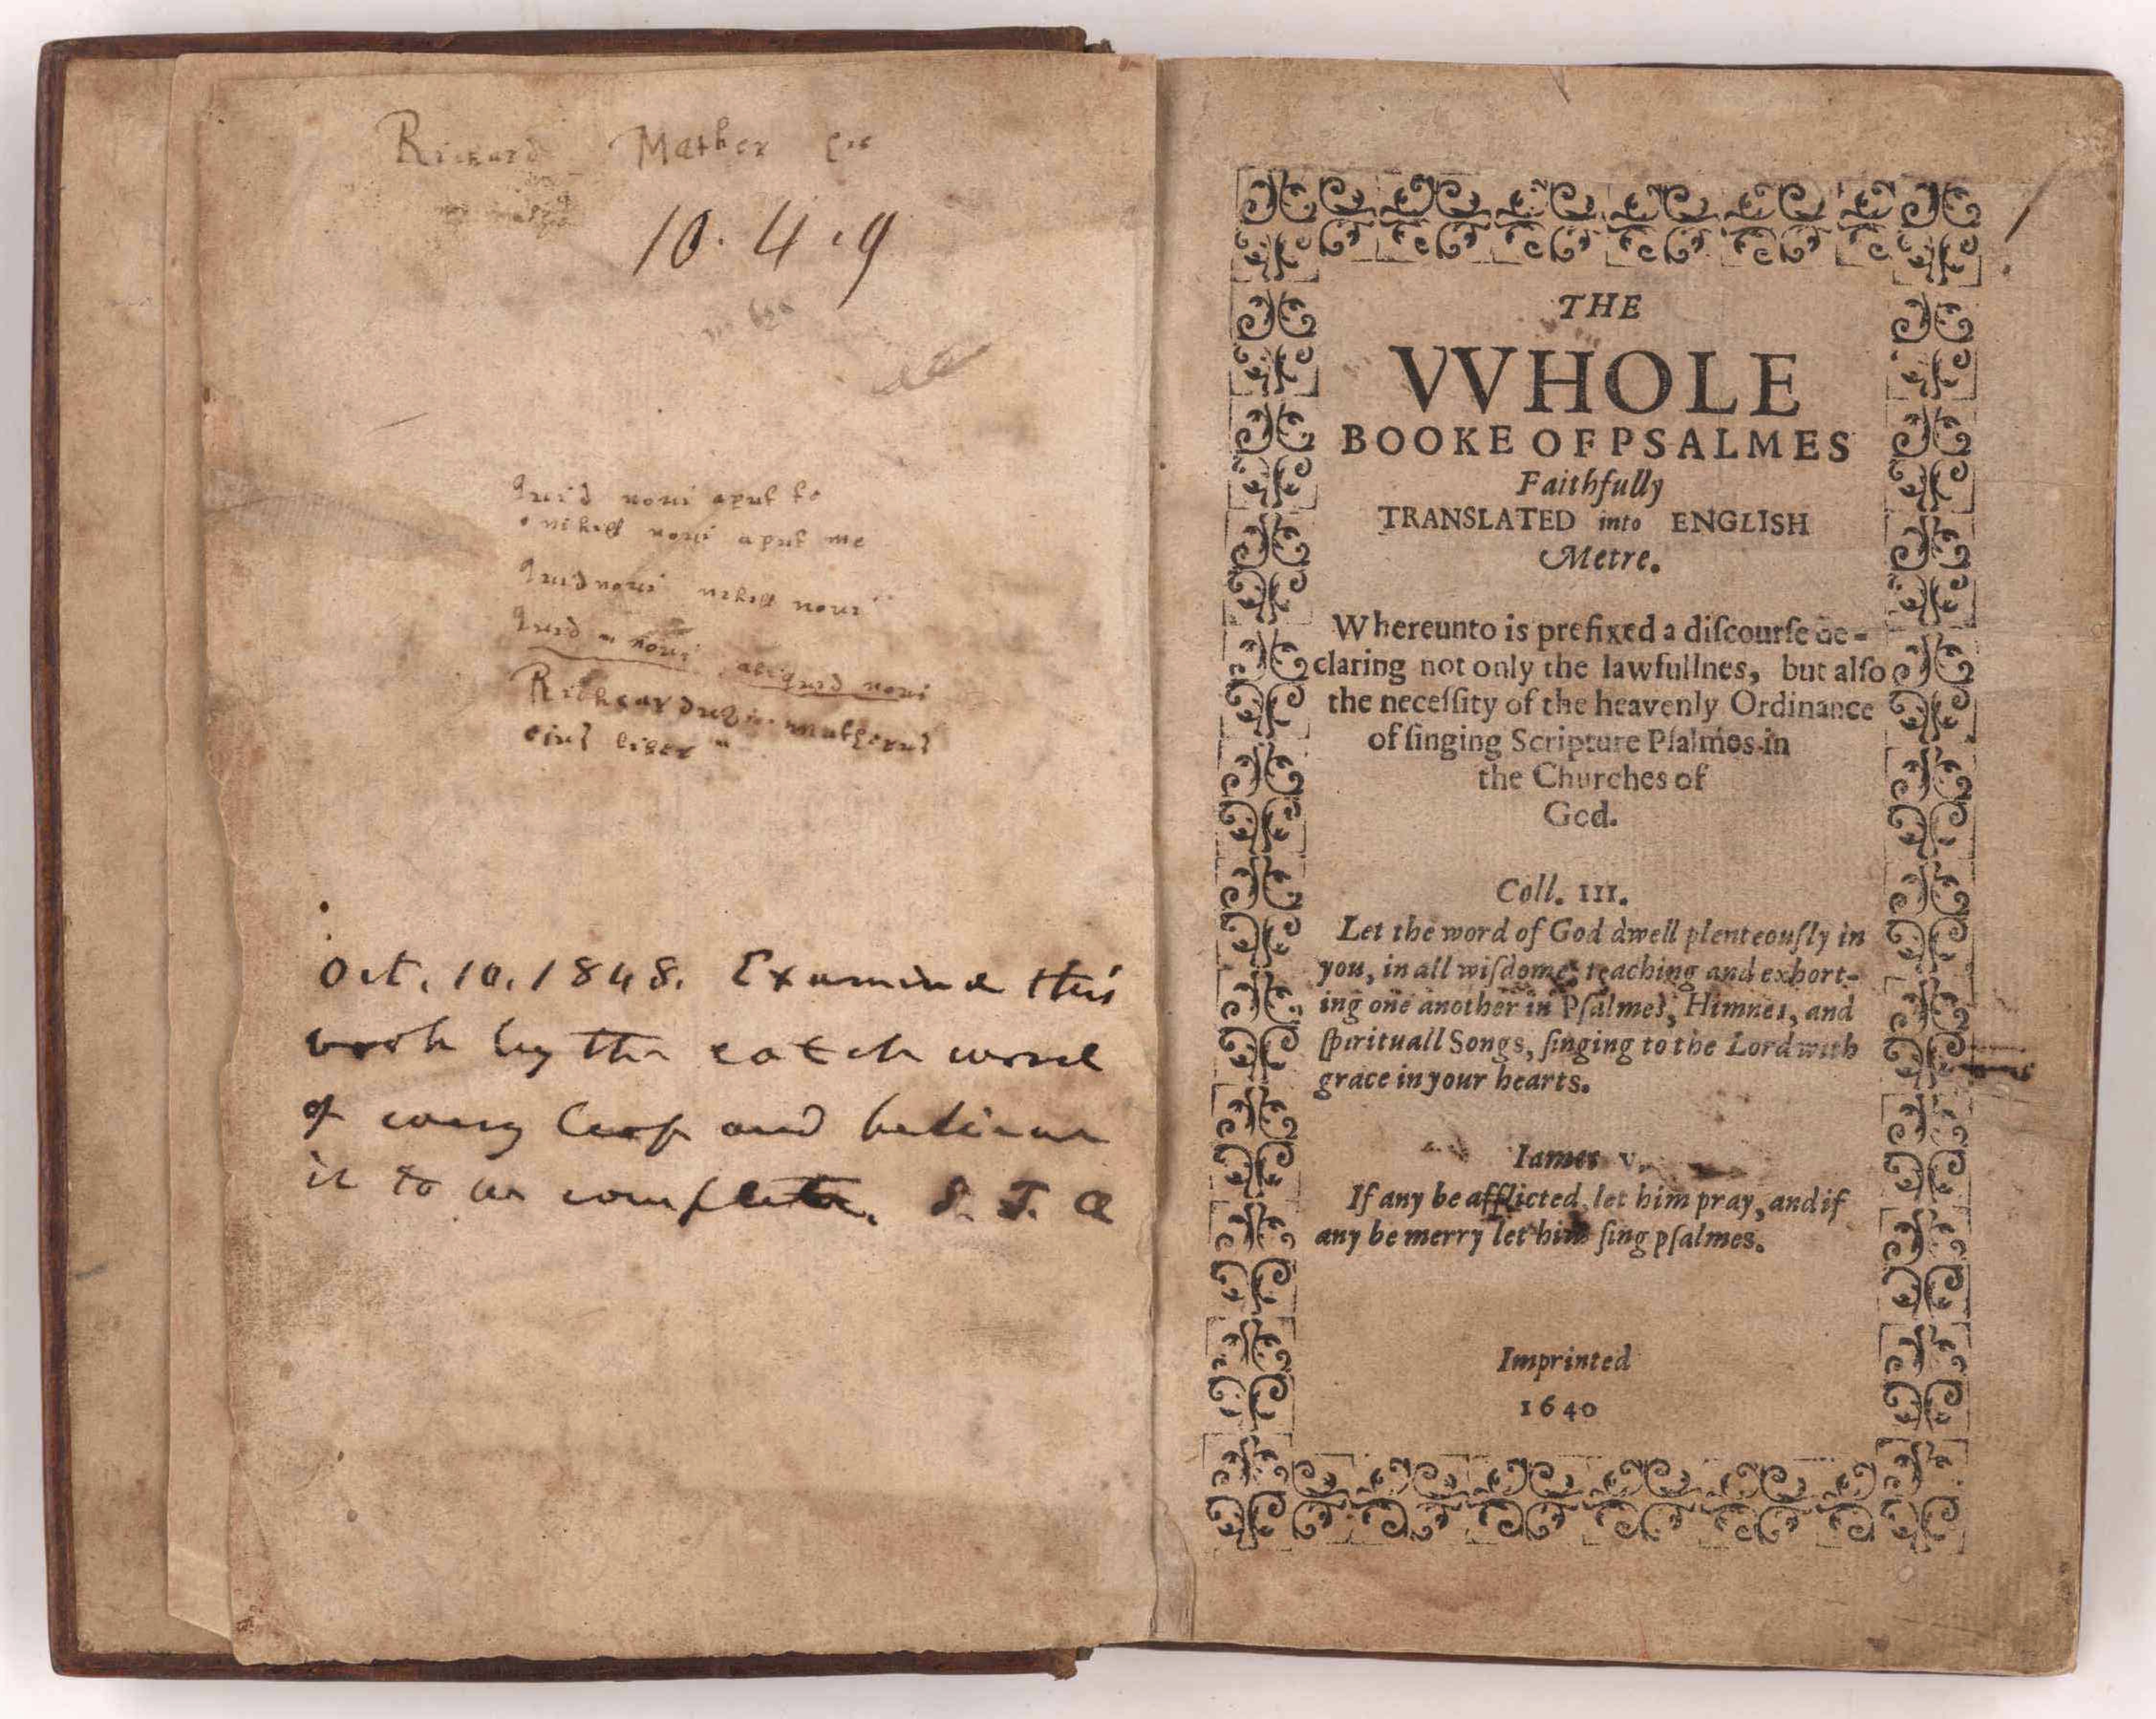 Richard Mather
10. 4. 9
Quid novi aput te
nihell novi aput me
Quid novi nihell novi
Quid novi aliquid novi
Richeardus matherus
eius liber
Oct. 10. 1848. Examined this
book by the catch word
of every leaf and believe
it to be complete. S. T. A
THE
VVHOLE
BOOKE OF PSALMES
Faithfully
TRANSLATED into ENGLISH
Metre.
Whereunto is prefixed a diſcourſe de-
claring not only the lawfullnes, but alſo
the neceſſity of the heavenly Ordinance
of ſinging Scripture Pſalmes in
the Churches of
God.
Coll. III.
Let the word of God dwell plenteouſly in
you, in all wiſdome, teaching and exhort-
ing one another in Pſalmes, Himnes, and
ſpirituall Songs, ſinging to the Lord with
grace in your hearts.
Iames V.
If any be afflicted, let him pray, and if
any be merry let him ſing pſalmes.
Imprinted
1640